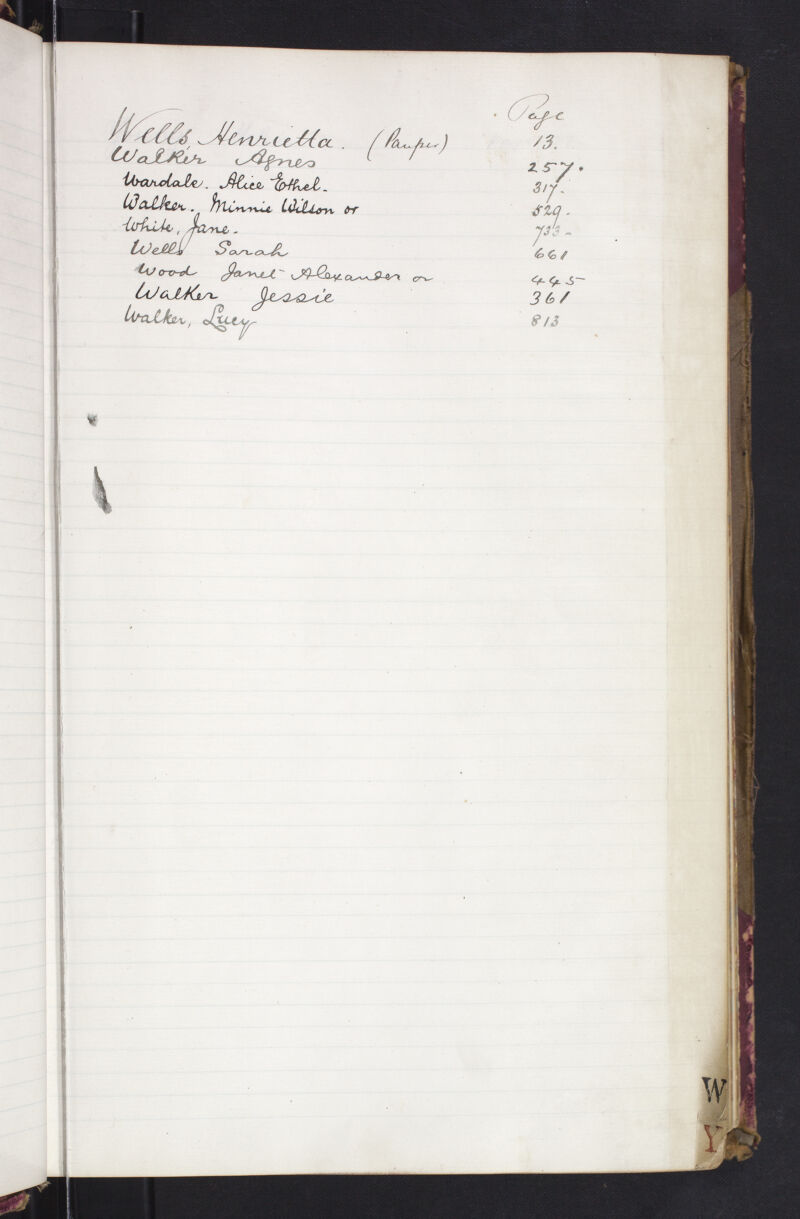 Page
Wells, Henrietta. (Pauper) 13.
Walker Agnes 257.
Wardale. Alice Ethel. 317.
Walker. Minnie Wilson or 529.
White, Jane. 733.
Wells Sarah 661
Wood Janet Alexander or 445
Walker Jessie 361
Walker, Lucy 813
W
Y